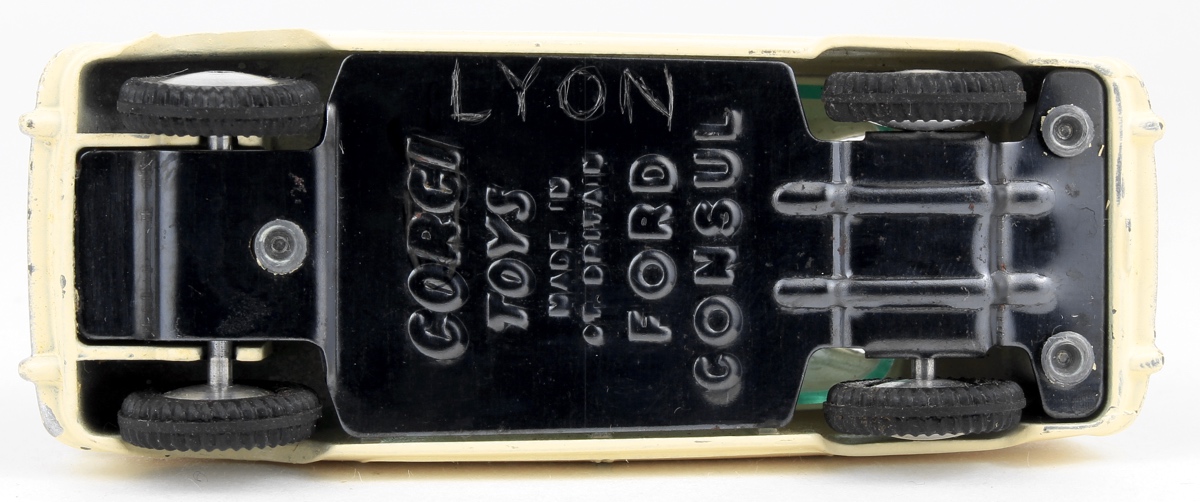 LYON
CORGI
TOYS
MADE IN
GT. BRITAIN
FORD
CONSUL